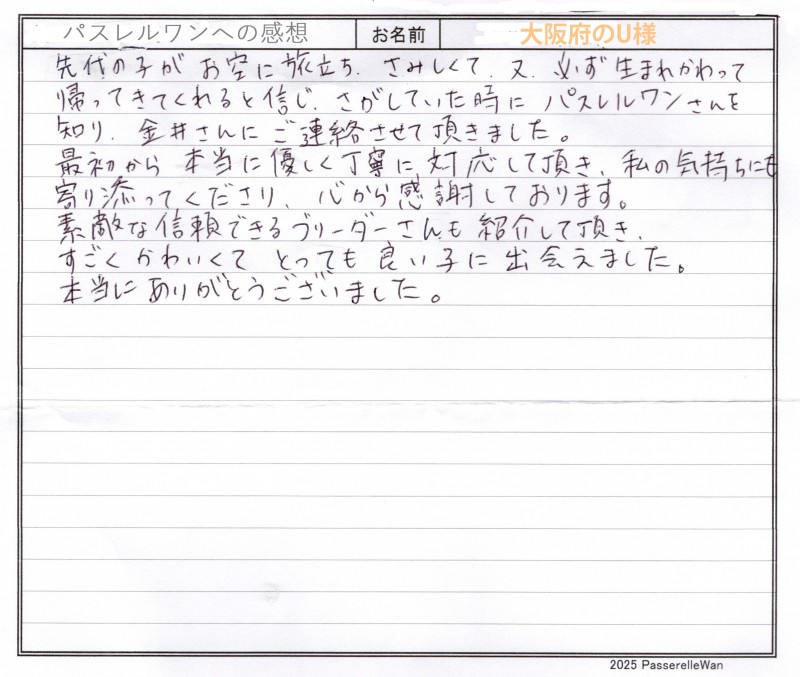 パスレルワンへの感想 お名前 大阪府のU様
先代の子が お空に旅立ち、さみしくて、又、必ず生まれかわって
帰ってきてくれると信じ、さがしていた時に パスレルワンさんを
知り、金井さんにご連絡させて頂きました。
最初から 本当に優しく丁寧に対応して頂き、私の気持ちにも
寄り添ってくださり、心から感謝しております。
素敵な信頼できるブリーダーさんも紹介して頂き、
すごくかわいくて とっても良い子に出会えました。
本当にありがとうございました。
2025 PasserelleWan